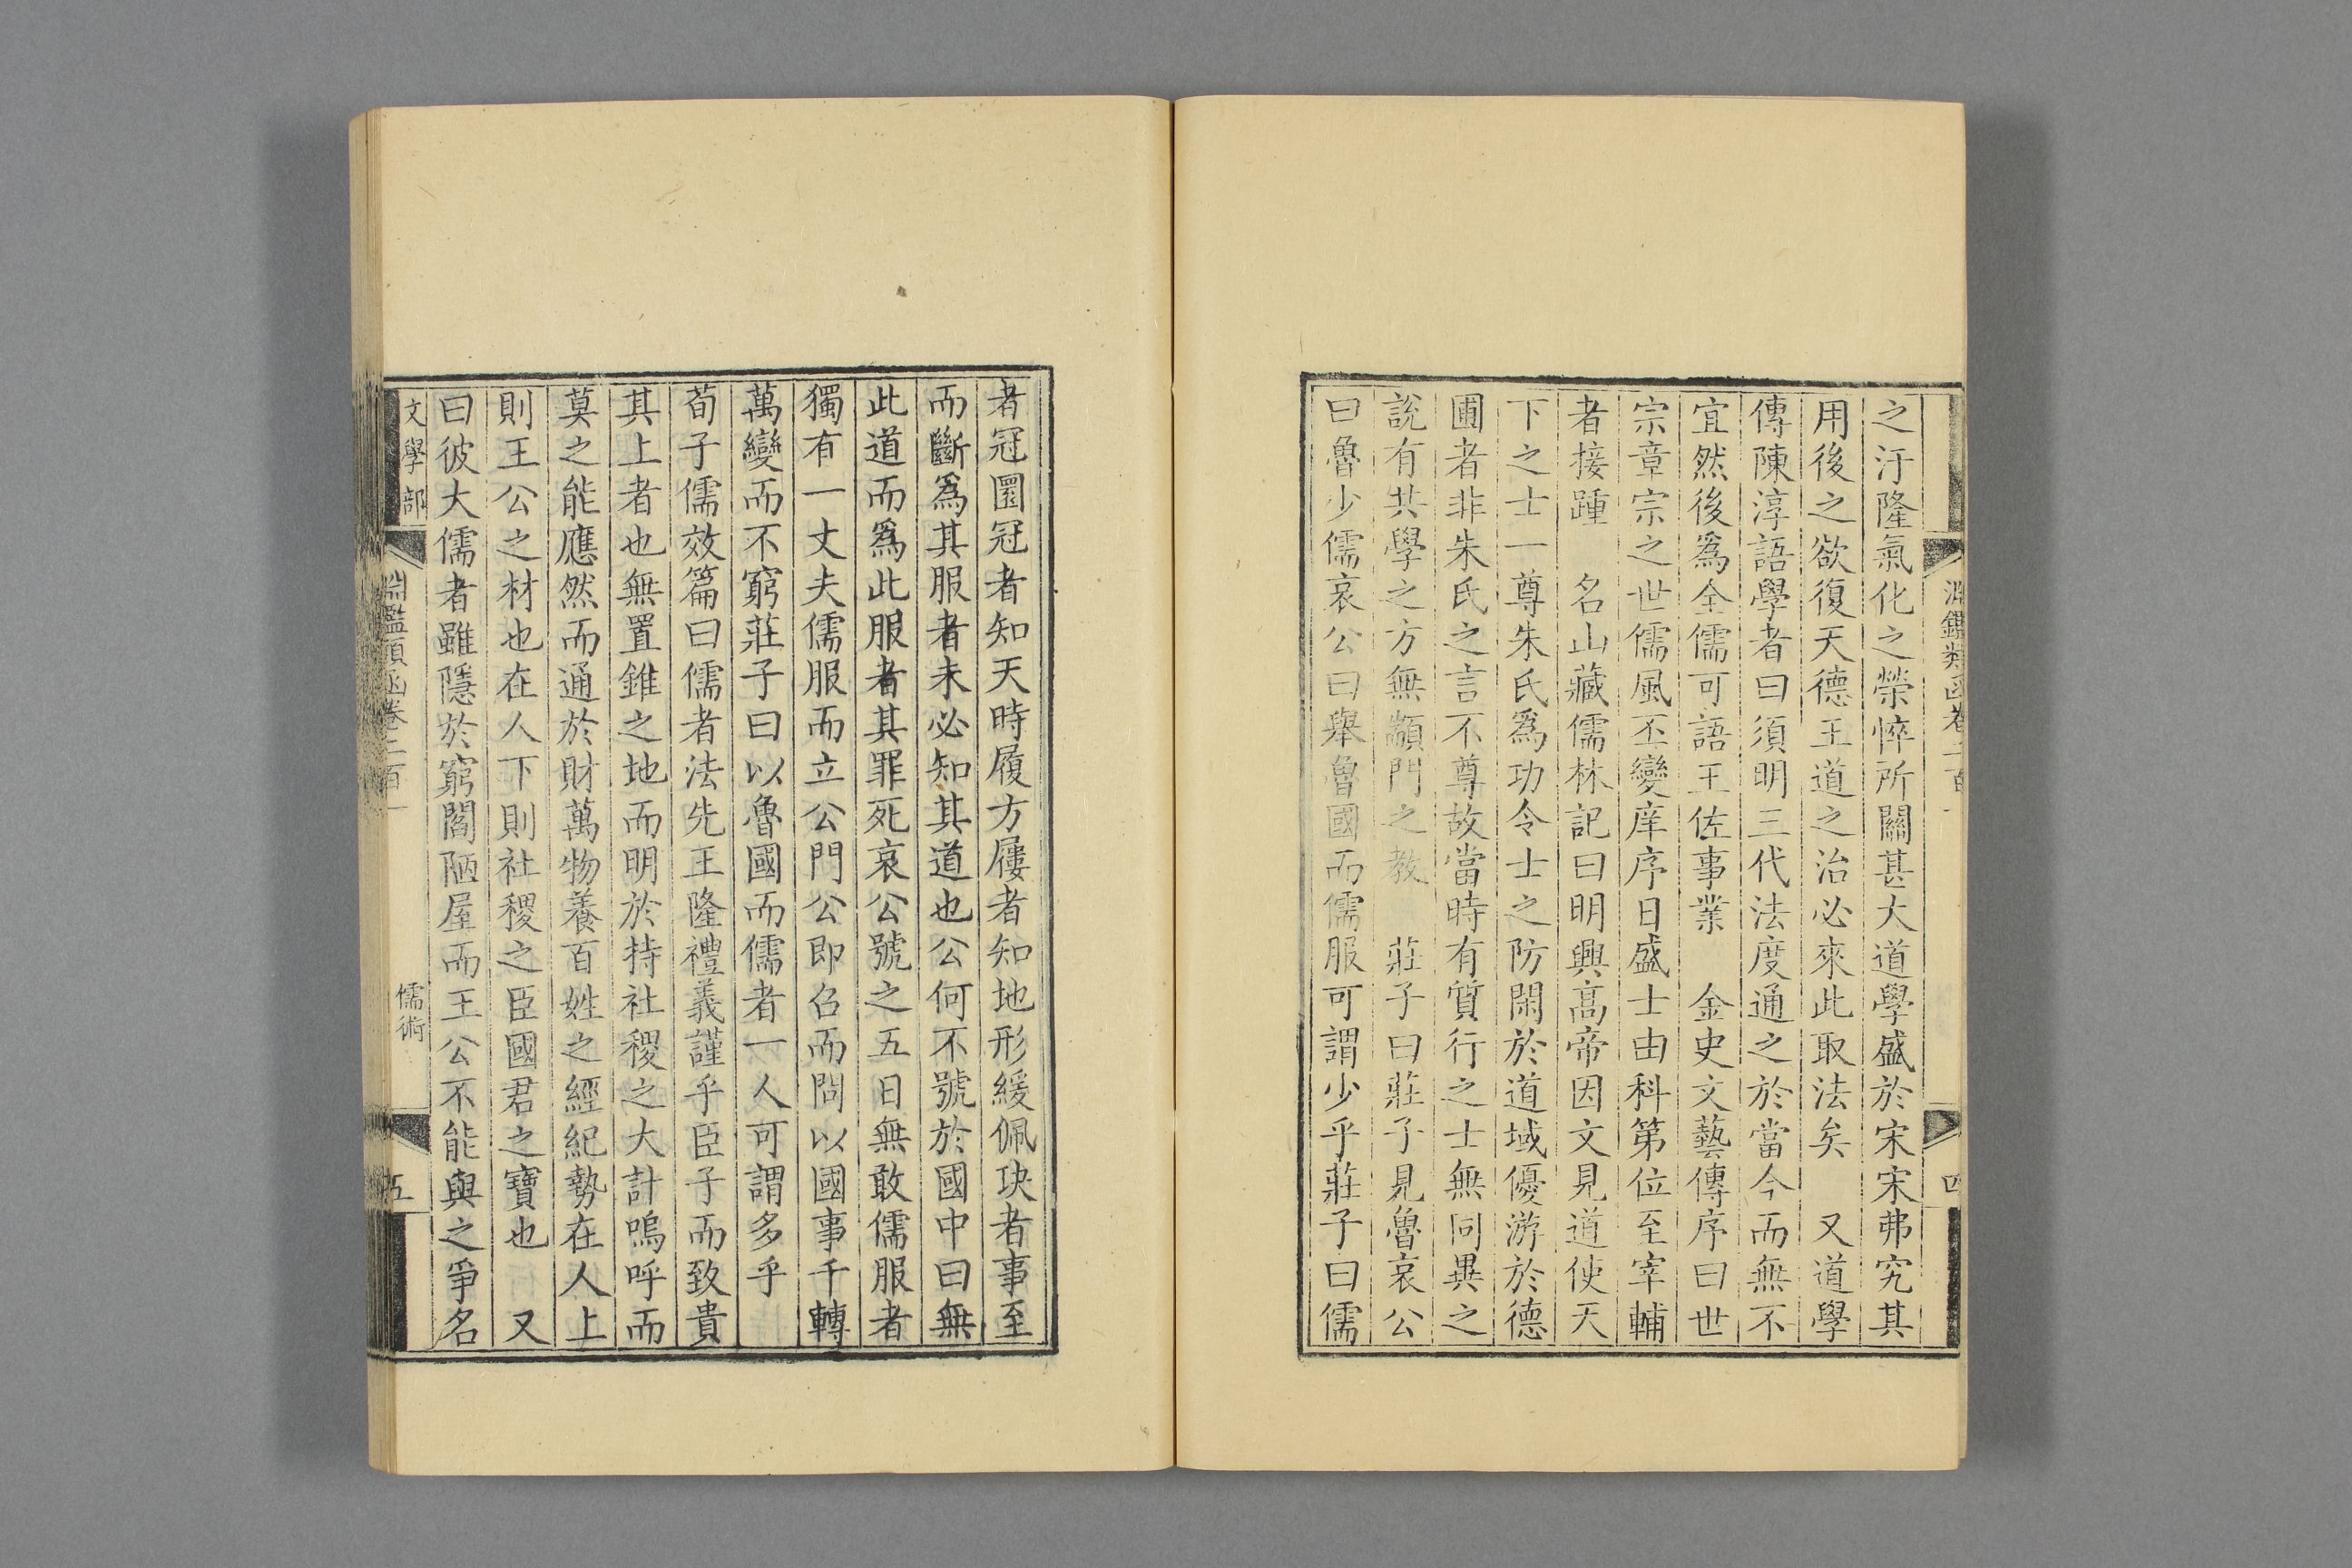 淵鑑類函卷二百一
四
之汙隆氣化之榮悴所關甚大道學盛於宋宋弗究其
用後之欲復天德王道之治必來此取法矣　又道學
傳陳淳語學者曰須明三代法度通之於當今而無不
宜然後爲全儒可語王佐事業　金史文藝傳序曰世
宗章宗之世儒風丕變庠序日盛士由科第位至宰輔
者接踵　名山藏儒林記曰明興高帝因文見道使天
下之士一尊朱氏爲功令士之防閑於道域優游於德
圃者非朱氏之言不尊故當時有質行之士無同異之
說有共學之方無顓門之教　莊子曰莊子見魯哀公
曰魯少儒哀公曰舉魯國而儒服可謂少乎莊子曰儒
者冠圜冠者知天時履方屨者知地形緩佩玦者事至
而斷爲其服者未必知其道也公何不號於國中曰無
此道而爲此服者其罪死哀公號之五日無敢儒服者
獨有一丈夫儒服而立公門公即召而問以國事千轉
萬變而不窮莊子曰以魯國而儒者一人可謂多乎
荀子儒效篇曰儒者法先王隆禮義謹乎臣子而致貴
其上者也無置錐之地而明於持社稷之大計嗚呼而
莫之能應然而通於財萬物養百姓之經紀勢在人上
則王公之材也在人下則社稷之臣國君之寶也　又
曰彼大儒者雖隱於窮閻陋屋而王公不能與之爭名
文學部
淵鑑類函卷二百一
儒術
五